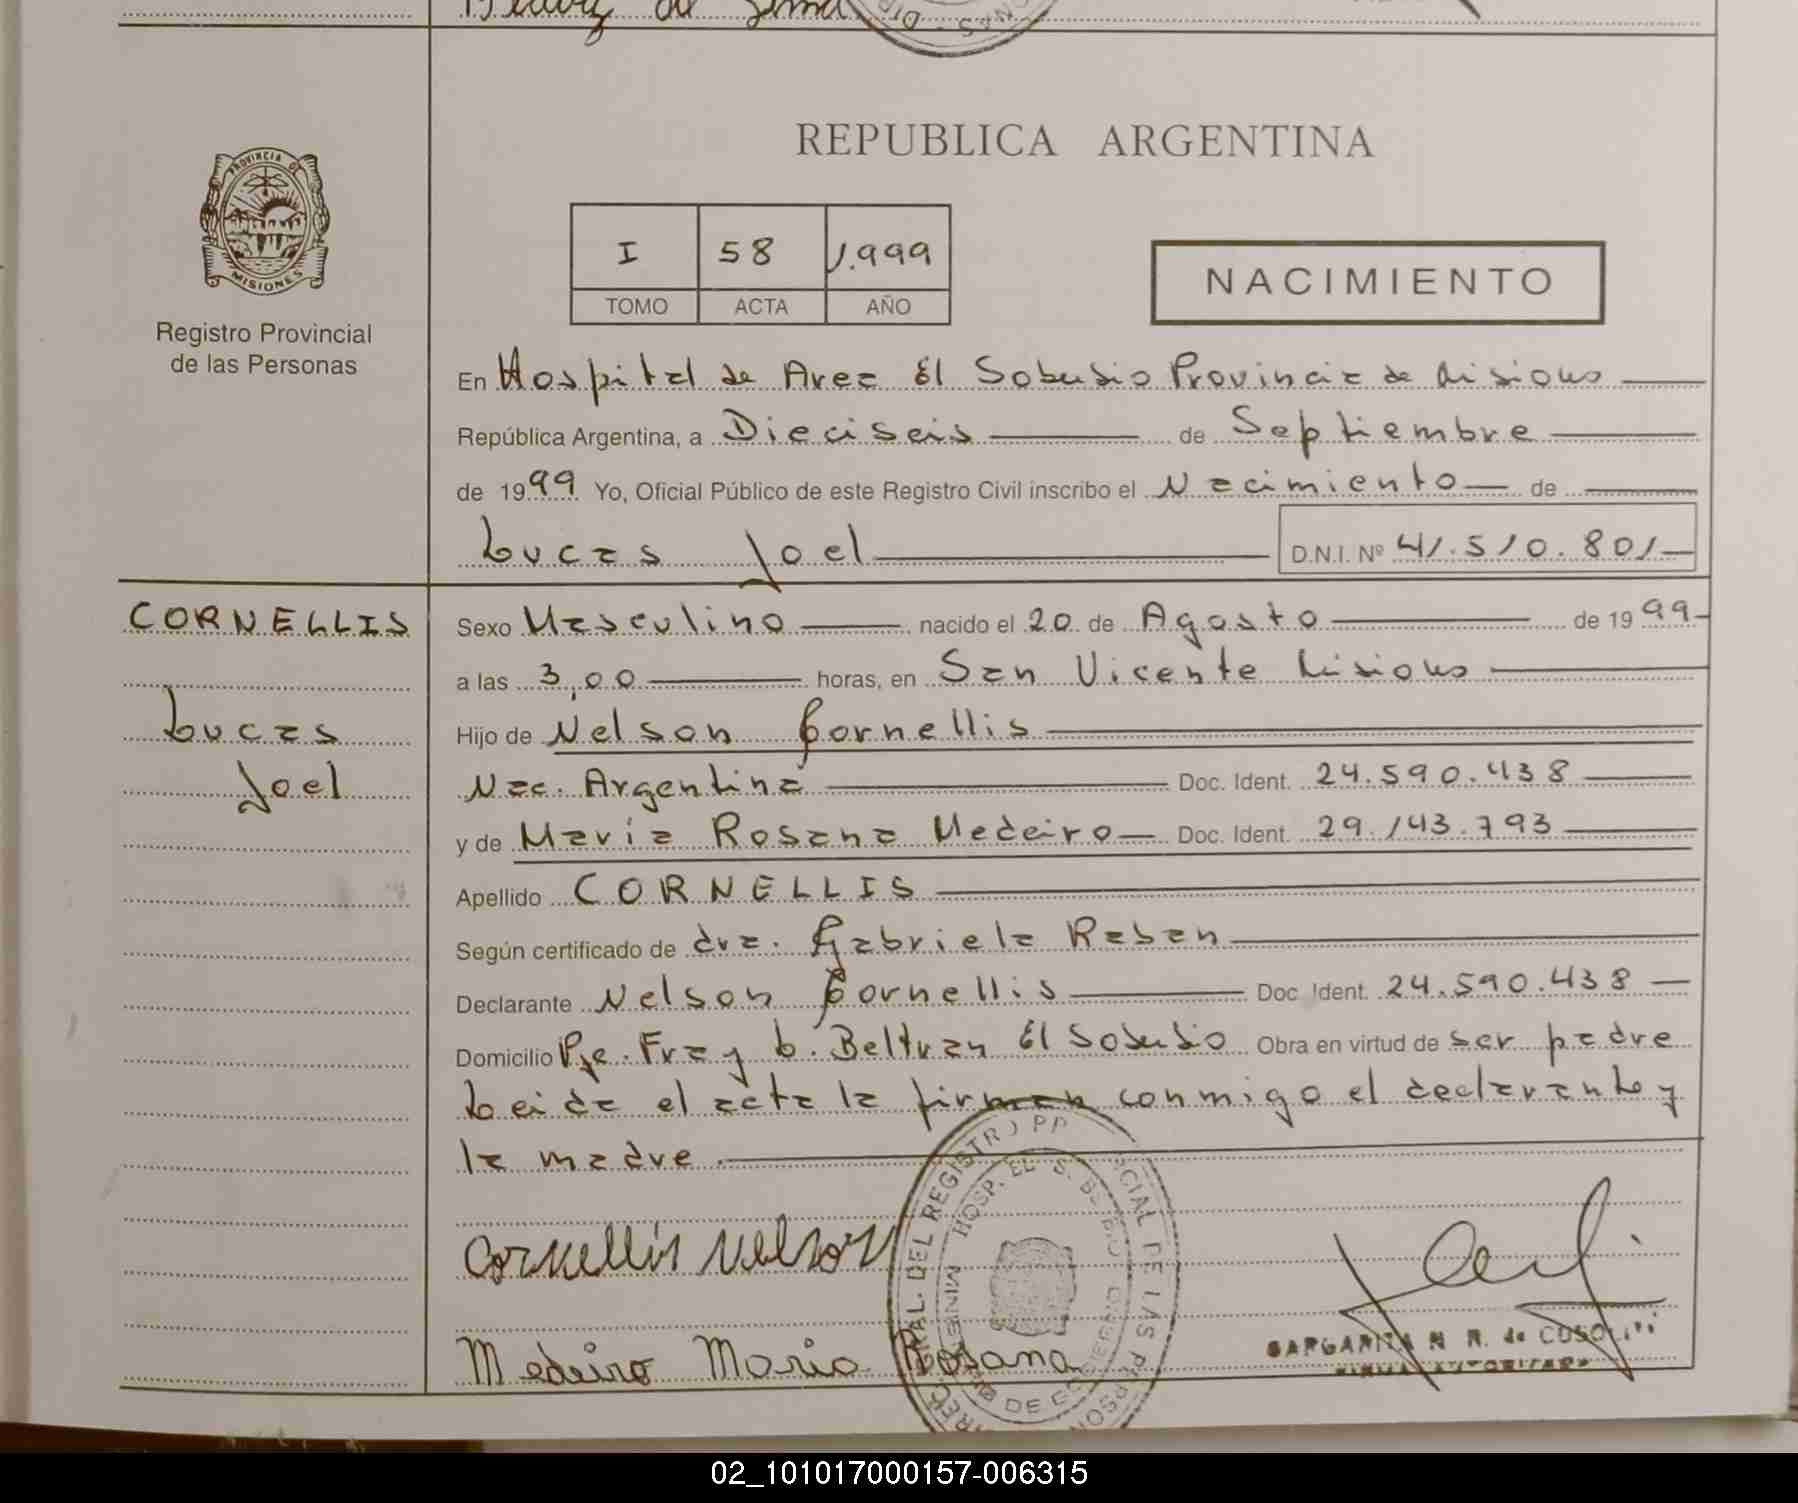 REPUBLICA ARGENTINA
PROVINCIA DE
MISIONES
Registro Provincial
de las Personas
I 58 1.999
TOMO ACTA AÑO
NACIMIENTO
En Hospital de Area El Soberbio Provincia de Misiones
República Argentina, a Dieciseis de Septiembre
de 1999 Yo, Oficial Público de este Registro Civil inscribo el Nacimiento de
Lucas Joel D.N.I. Nº 41.510.801
CORNELLIS
Lucas
Joel
Sexo Masculino nacido el 20 de Agosto de 1999
a las 3,00 horas, en San Vicente Misiones
Hijo de Nelson Cornellis
Nac. Argentina Doc. Ident. 24.590.438
y de Maria Rosana Medeiro Doc. Ident. 29.143.793
Apellido CORNELLIS
Según certificado de dra. Gabriela Raban
Declarante Nelson Cornellis Doc. Ident. 24.590.438
Domicilio Pje. Fray L. Beltran El Soberbio Obra en virtud de ser padre
Leida el acta la firman conmigo el declarante y
la madre
Cornellis Nelson
Medeiro Maria Rosana
02_101017000157-006315